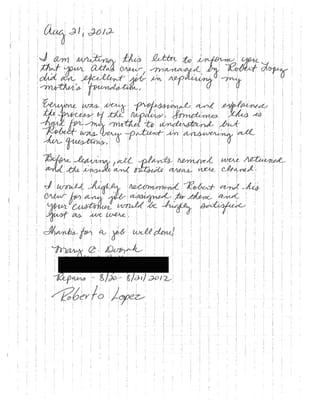 Aug 21, 2012
I am writing this letter to inform you
that your Atlas crew, managed by Robert Lopez
did an excellent job in repairing my
mother's foundation.
Everyone was very professional and explained
the process of the repairs. Sometimes this is
hard for my mother to understand but
Robert was very patient in answering all
her questions.
Before leaving, all plants removed were returned
and the inside and outside areas were cleaned.
I would highly recommend Robert and his
crew for any job assigned to them and
your customer would be highly satisfied
just as we were.
Thanks for a job well done!
Mary C. Dvorak
Repairs - 8/20 - 8/21/2012
Roberto Lopez